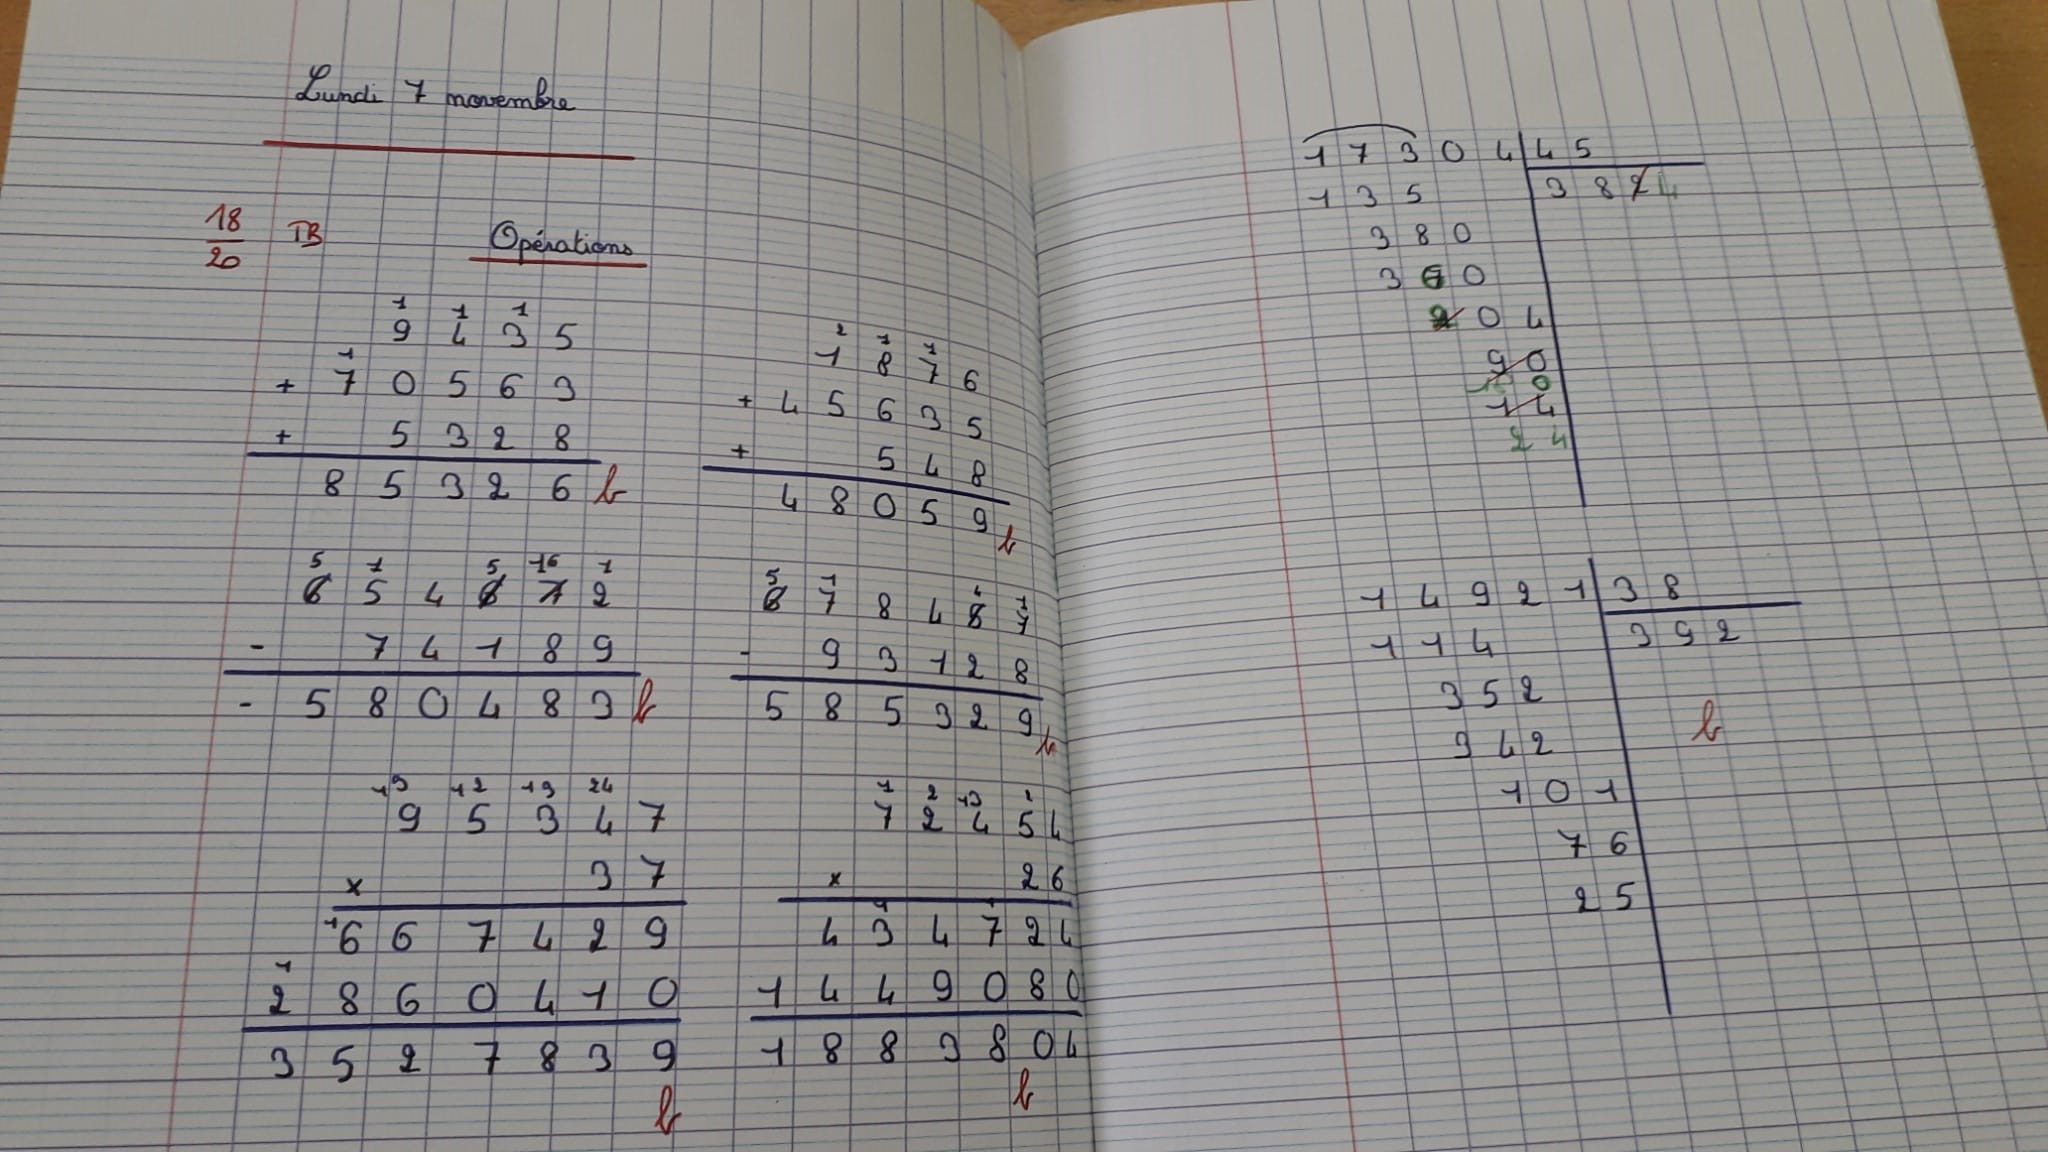 Lundi 7 novembre
18
20
TB
Opérations
1 1 1
9 4 3 5
1
+ 7 0 5 6 3
+ 5 3 2 8
8 5 3 2 6 b
2 1 1
1 8 7 6
+ 4 5 6 3 5
+ 5 4 8
4 8 0 5 9
b
5 1 5 16 1
6 5 4 6 7 2
- 7 4 1 8 9
- 5 8 0 4 8 3 b
5 1 4 1
6 7 8 4 5 7
- 9 3 1 2 8
5 8 5 3 2 9
b
13 12 13 24
9 5 3 4 7
x 3 7
1
6 6 7 4 2 9
1
2 8 6 0 4 1 0
3 5 2 7 8 3 9
b
1 2 13 2
7 2 4 5 4
x 2 6
1 1
4 3 4 7 2 4
1 4 4 9 0 8 0
1 8 8 3 8 0 4
b
1 7 3 0 4 4 5
1 3 5 3 8 2 4
3 8 0
3 6 0
2 0 4
9 0
0
1 4
2 4
1 4 9 2 1 3 8
1 1 4 3 9 2
3 5 2
b
3 4 2
1 0 1
7 6
2 5